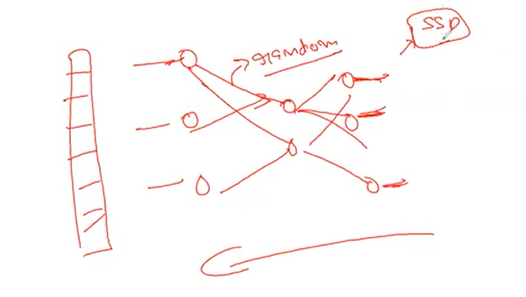 random
SSD